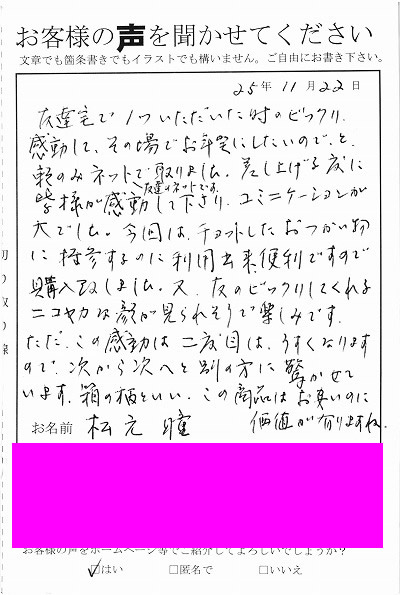 お客様の声を聞かせてください
文章でも箇条書きでもイラストでも構いません。ご自由にお書き下さい。
25年11月22日
友達宅で1ついただいた時のビックリ、
感動して、その場でお年賀にしたいので、と、
頼のみネットで取りました。差し上げる度に
友達のネットです。
皆様が感動して下さり、コミニケーションが
大でした。今回は、チョットしたおつかい物
に持参するのに利用出来便利ですので
購入致しました。又、友のビックリしてくれる
ニコヤカな顔が見られそうで楽しみです。
ただ、この感動は二度目は、うすくなります
ので、次から次へと別の方に驚かせて
います。箱の柄といい、この商品はお使いのに
価値が有りますね。
お名前 松元 瞳
お客様の声をホームページ等でご紹介してよろしいでしょうか？
☑はい □匿名で □いいえ